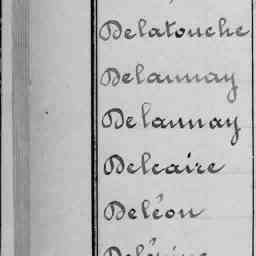 Delatouche
Delaunay
Delaunay
Delcaire
Deléon
Delépine